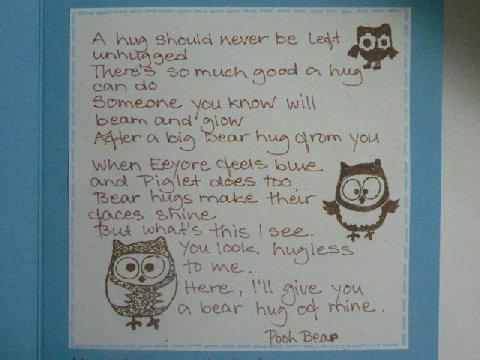 A hug should never be left
unhugged
There's so much good a hug
can do
Someone you know will
beam and glow
After a big Bear hug from you
When Eeyore feels blue
and Piglet does too
Bear hugs make their
faces shine
But what's this I see.
You look hugless
to me.
Here, I'll give you
a bear hug of mine.
Pooh Bear